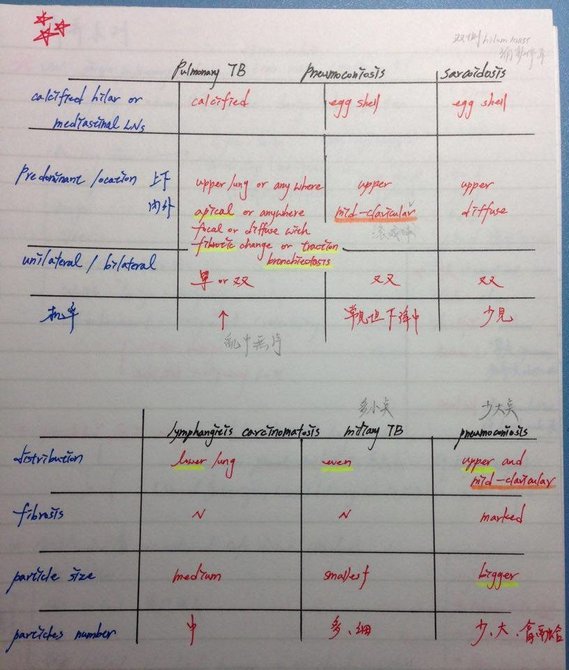 双側 hilum mass
pulmonary TB pneumoconiosis sarcoidosis
calcified hilar or calcified egg shell egg shell
mediastinal LNs
predominant location 上下 upper lung or anywhere upper upper
內外 apical or anywhere mid-clavicular diffuse
focal or diffuse with
fibrotic change or traction
bronchiectasis
unilateral / bilateral 單 or 双 双 双
机率 ↑ 常見但下降中 少見
亂中無序
多小矣 少大矣
lymphangitis carcinomatosis miliary TB pneumoconiosis
distribution lower lung even upper and
mid-clavicular
fibrosis N N marked
particle size medium smallest bigger
particles number 中 多、細 少、大、會融合